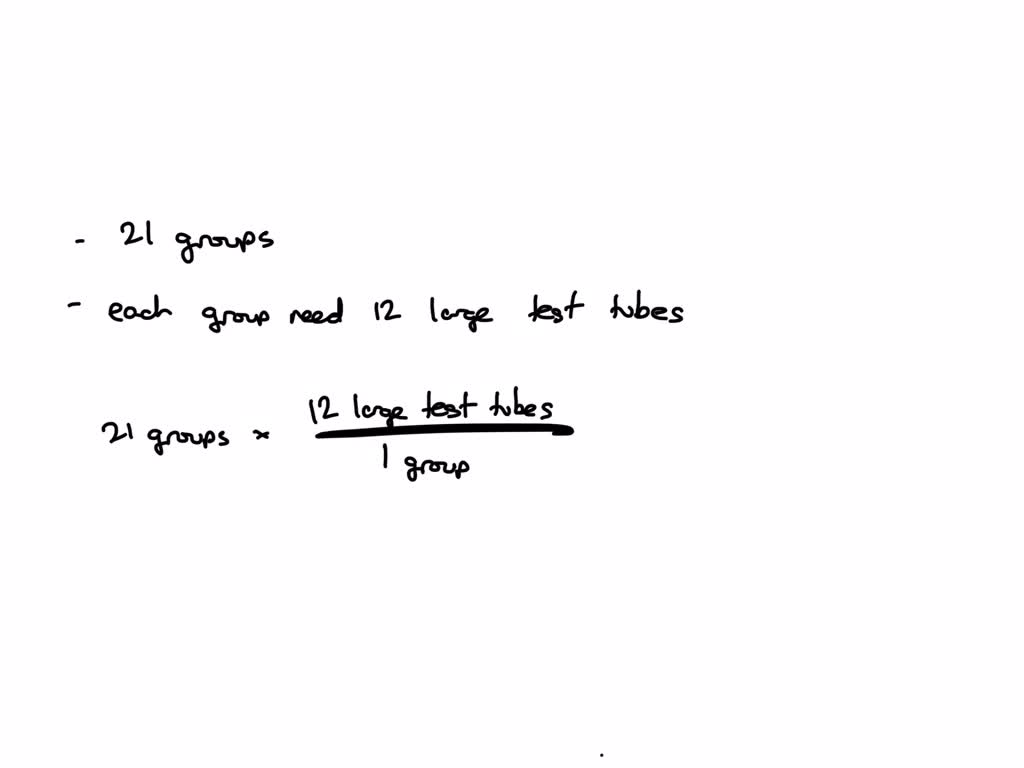 - 21 groups
- each group need 12 large test tubes
21 groups × 12 large test tubes
1 group